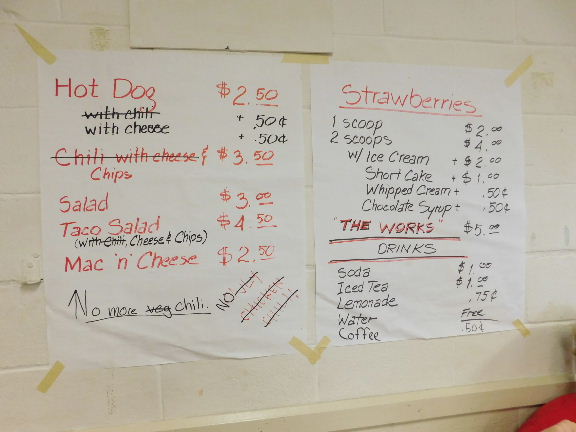 Hot Dog $2.50
with chili + .50¢
with cheese + .50¢
Chili with cheese & $3.50
Chips
Salad $3.00
Taco Salad $4.50
(with Chili, Cheese & Chips)
Mac 'n' Cheese $2.50
No more veg chili.
NO
Strawberries
1 scoop $2.00
2 scoops $4.00
w/ Ice Cream + $2.00
Short Cake + $1.00
Whipped Cream + .50¢
Chocolate Syrup + .50¢
"THE WORKS" $5.00
DRINKS
Soda $1.00
Iced Tea $1.00
Lemonade .75¢
Water Free
Coffee .50¢